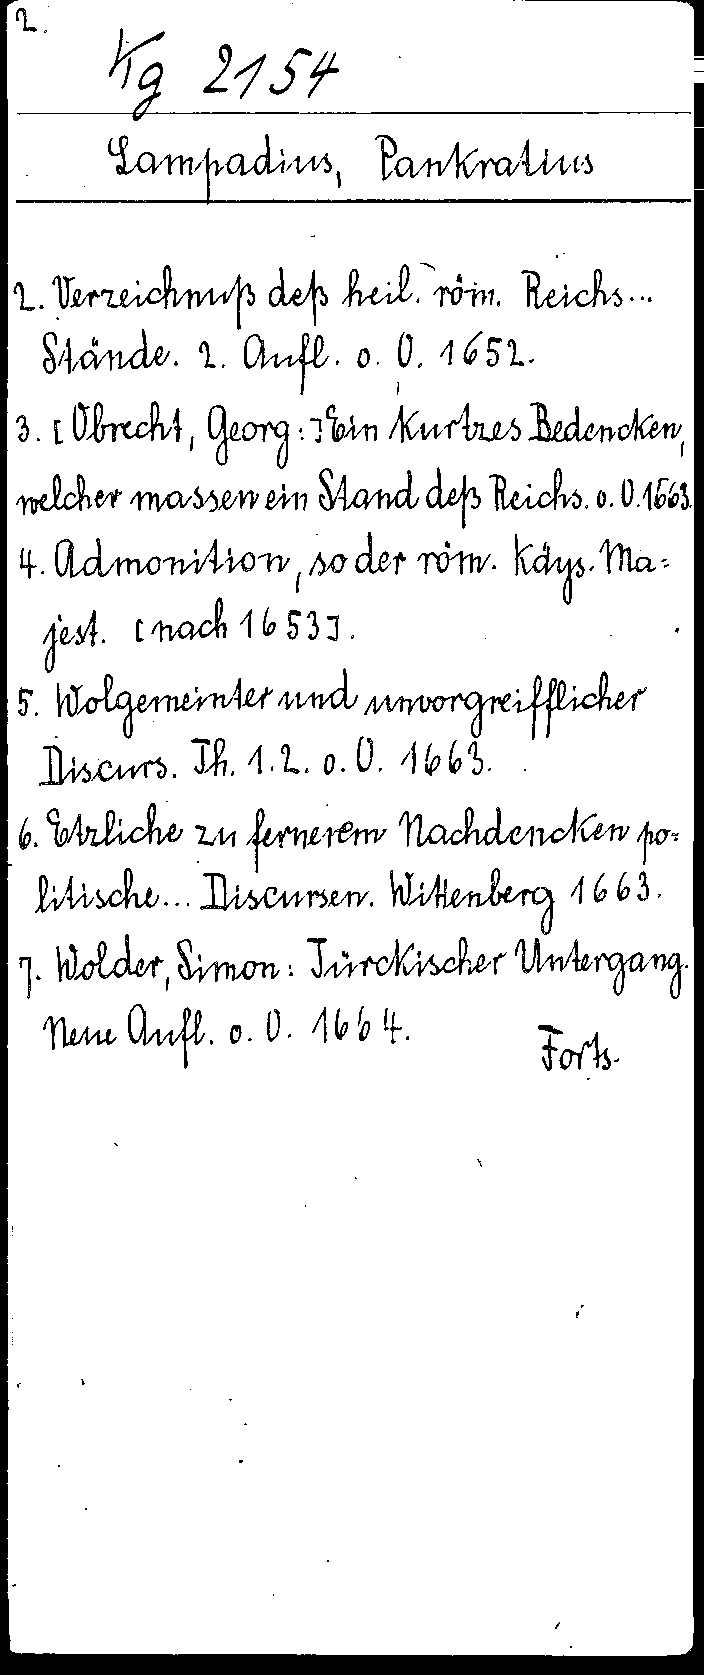 2.
Kg 2154
Lampadius, Pankratius
2. Verzeichnuß deß heil. röm. Reichs...
Stände. 2. Aufl. o. O. 1652.
3. [Obrecht, Georg:] Ein kurtzes Bedencken,
welcher massen ein Stand deß Reichs. o. O. 1663.
4. Admonition, so der röm. Käys. Ma=
jest. [nach 1653].
5. Wolgemeinter und unvorgreifflicher
Discurs. Th. 1.2. o. O. 1663.
6. Etzliche zu fernerem Nachdencken po=
litische... Discursen. Wittenberg 1663.
7. Wolder, Simon: Türckischer Untergang.
Neue Aufl. o. O. 1664.
Forts.